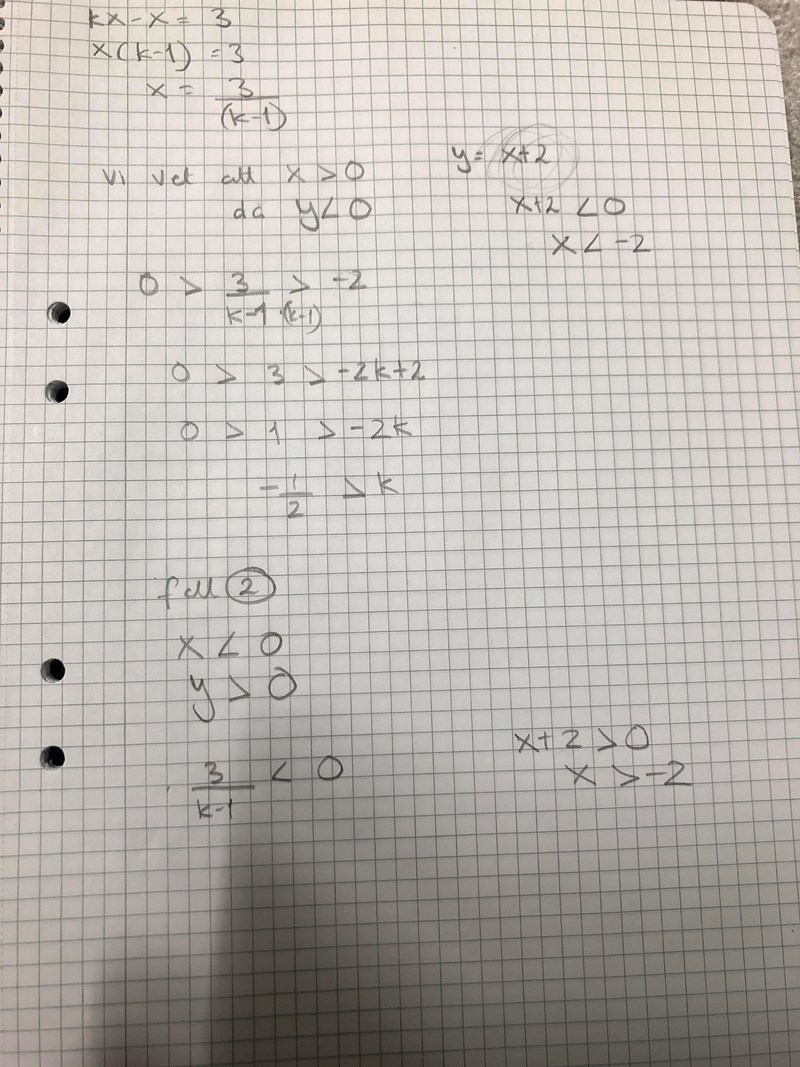 kx - x = 3
x(k-1) = 3
x = 3/(k-1)
vi vet att x > 0
då y < 0
y = x+2
x+2 < 0
x < -2
0 > 3/k-1 ·(k-1) > -2
0 > 3 > -2k+2
0 > 1 > -2k
-1/2 > k
fall 2
x < 0
y > 0
3/k-1 < 0
x+2 > 0
x > -2